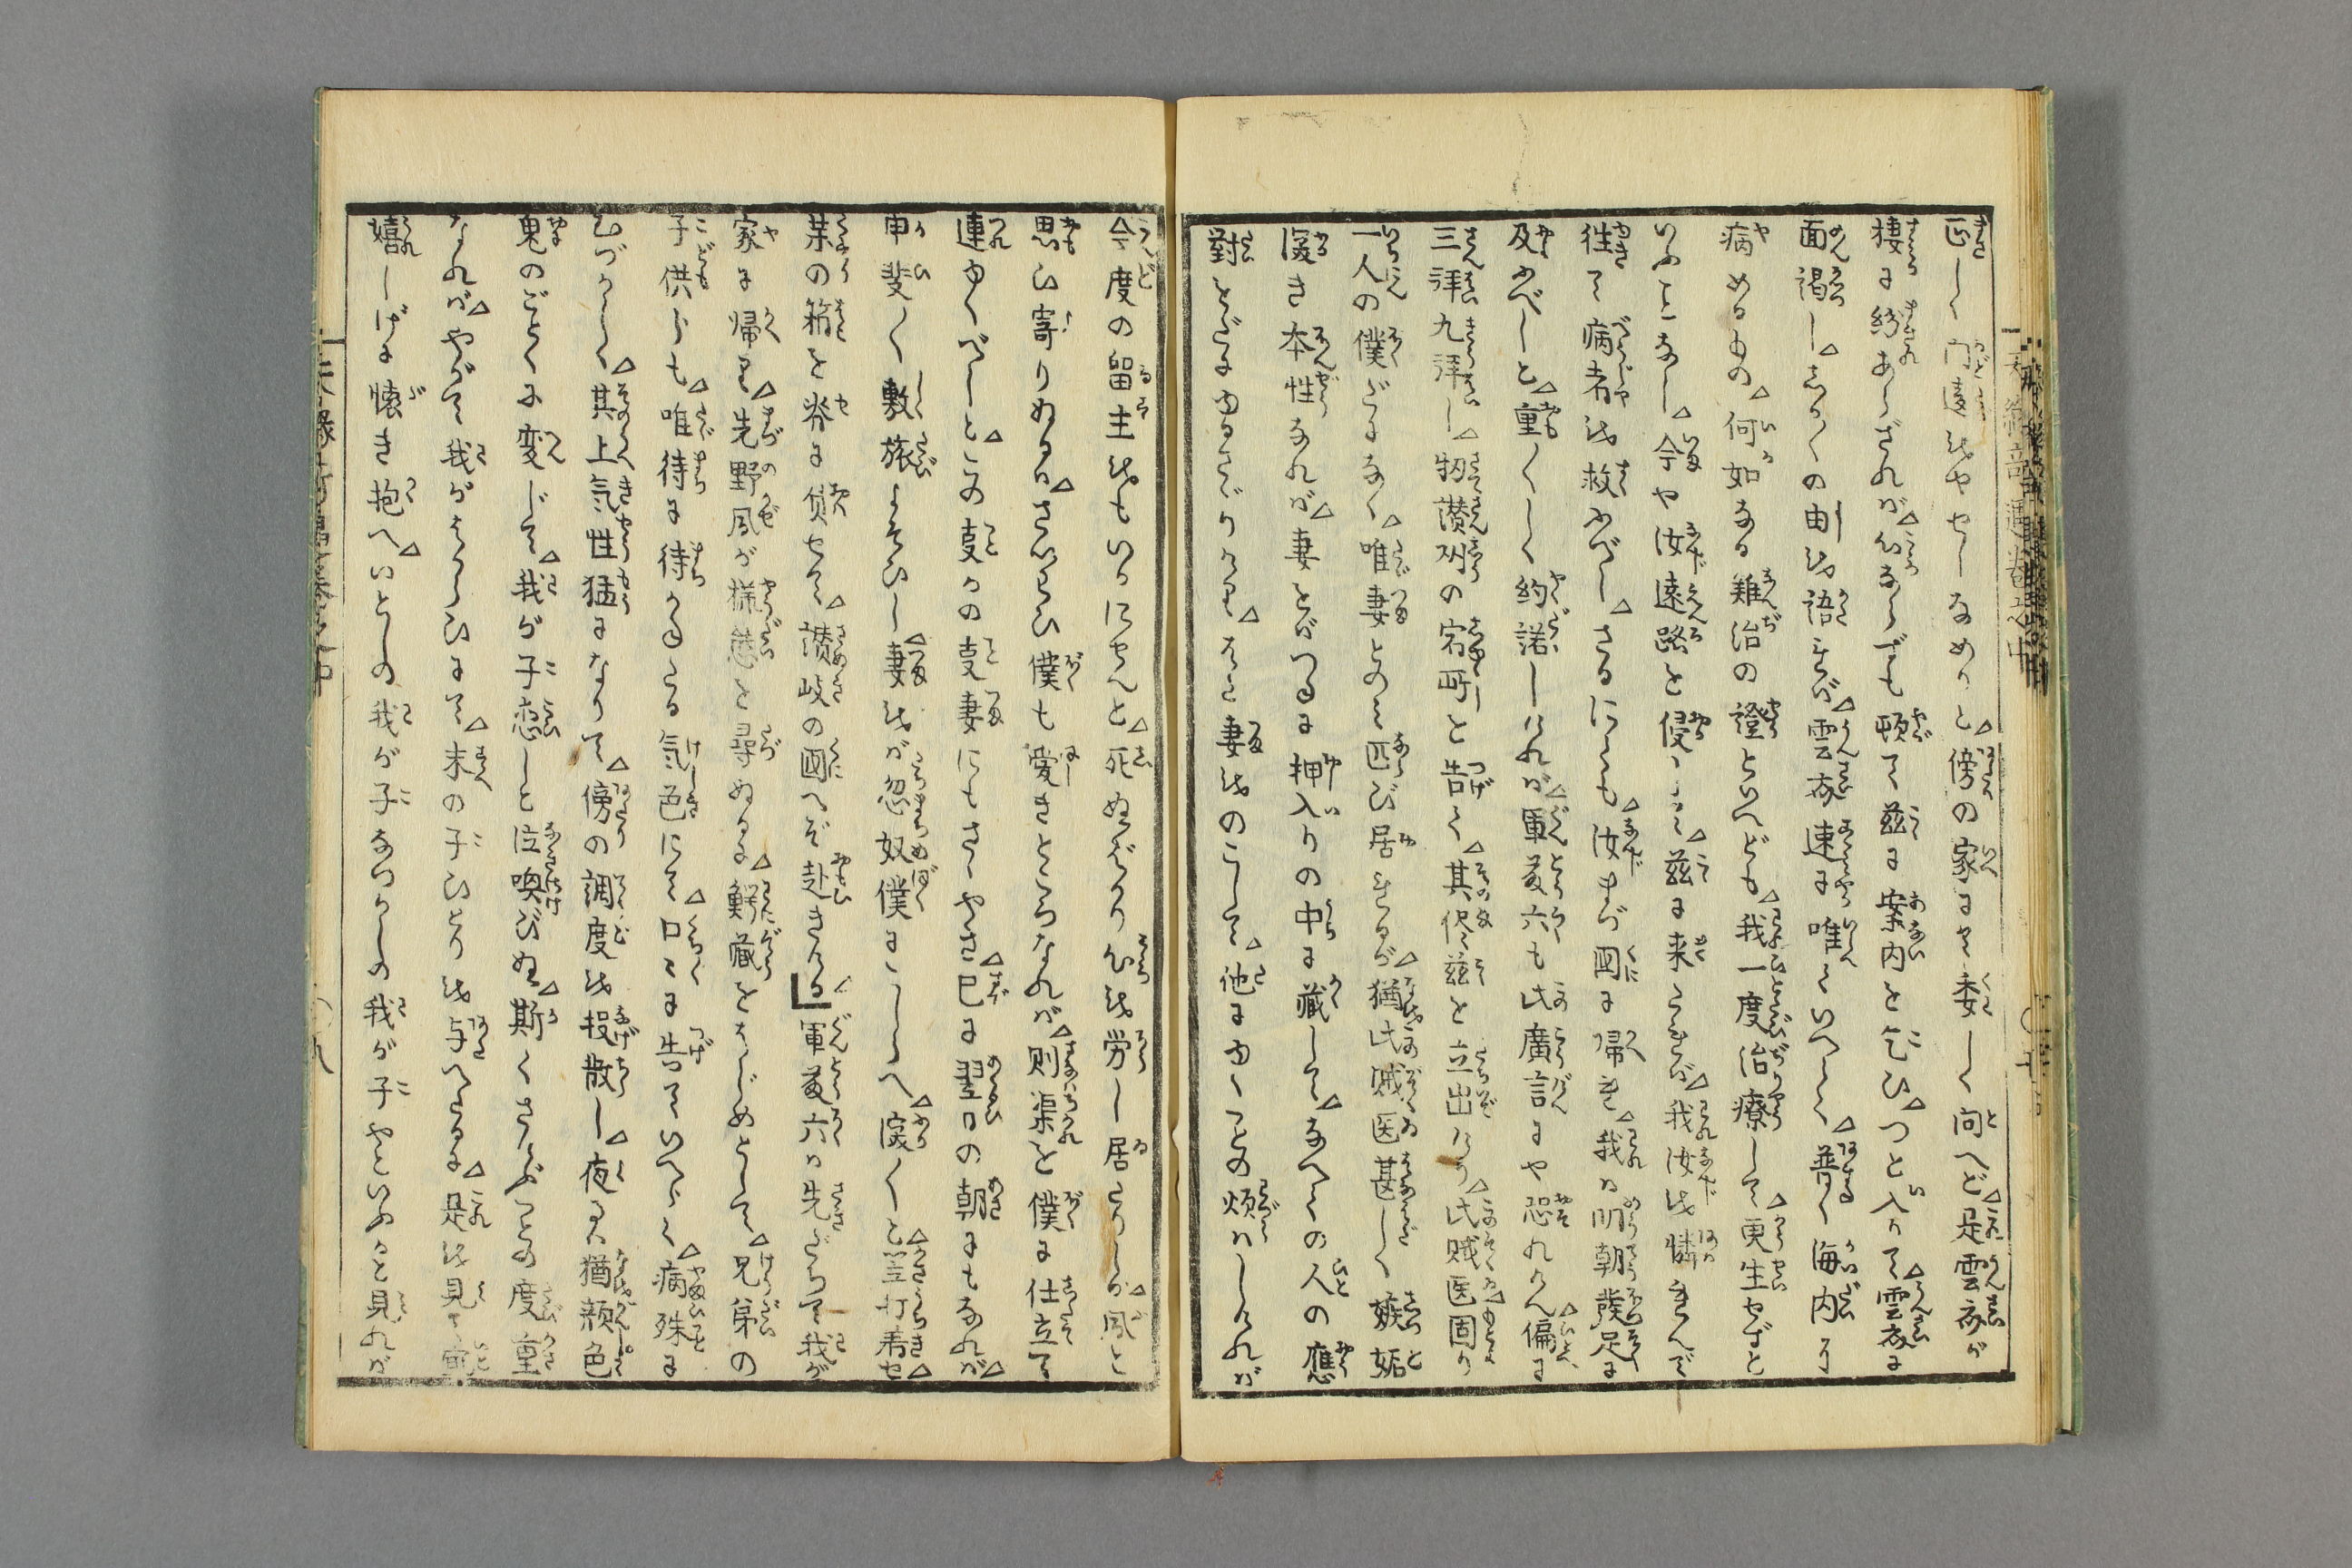 正しく門違やせしなめりと傍の家にて委しく問へど是雲夜が
棲に紛あらざれば△心ならずも頓て茲に案内を乞ひ△つと入りて△雲夜に
面謁し△しか〳〵の由を語ければ△雲夜速に唯ていへらく△普く海内に
病めるもの△何如なる難治の證といへども△我一度治療して△更生せずと
いふことなし△今や汝遠路を侵して△茲に来るうへは△我汝を憐
徃て病者を救ふべし△さるにても△汝まづ国に帰れ△我は明朝發足に
及ふべしと△重〳〵しく約諾しければ△軍藤六も此廣言にや恐れけん△偏に
三拝九拝し△扨讃州の宿所を告て△其侭茲を立出けり△此賊医固り
一人の僕だになく△唯妻とのみ匹び居けるが△猶此賊医甚しく嫉妬
深き本性なれば△妻をばつねに押入りの中に藏して△なべての人の應
對をだにゆるさゞりけり△さるを妻をのこして△他にゆくことの煩はしければ
今度の留主をもいかにせんと△死ぬばかり心を労し居たりしが△風と
思ひ寄りぬるは△さいはひ僕も愛きところなれば△則渠を僕に仕立て
連ゆくべしと△この㕝かの㕝妻にもさゝやき△已に翌日の朝にもなれば△
甲斐〳〵敷旅よそひし△妻をば忽奴僕にこしらへ△深〳〵と△笠打着せ△
薬の箱を脊に負せて△讃岐の国へぞ赴きける△軍藤六は先だちて我が
家に帰り△先野風が様態を尋ぬるに△鰐藏をはじめとして△兄弟の
子供らも△唯待に待かねたる気色にて△口〳〵に告ていへらく△病殊に
むづかしく△其上気性猛になりて△傍の調度を投散し△夜る〳〵猶顔色
鬼のごとくに変じて△我が子恋しと泣喚びぬ△斯くさけぶことの度重
なれば△やがて我がはからひにて△末の子ひとりを与へたるに△是を見て
嬉しげに懐き抱へ△いとしの我が子なつかしの我が子やといふかと見れば